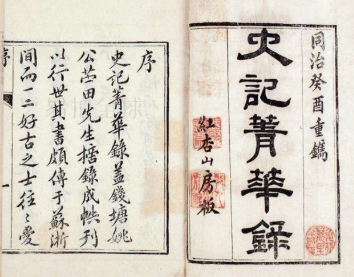 同治癸酉重鐫
史記菁華錄
紅杏山房板
序
史記菁華錄蓋錢塘姚
公苧田先生摘錄成帙刊
以行世其書頗傳于蘇浙
間而一二好古之士往〻愛
序